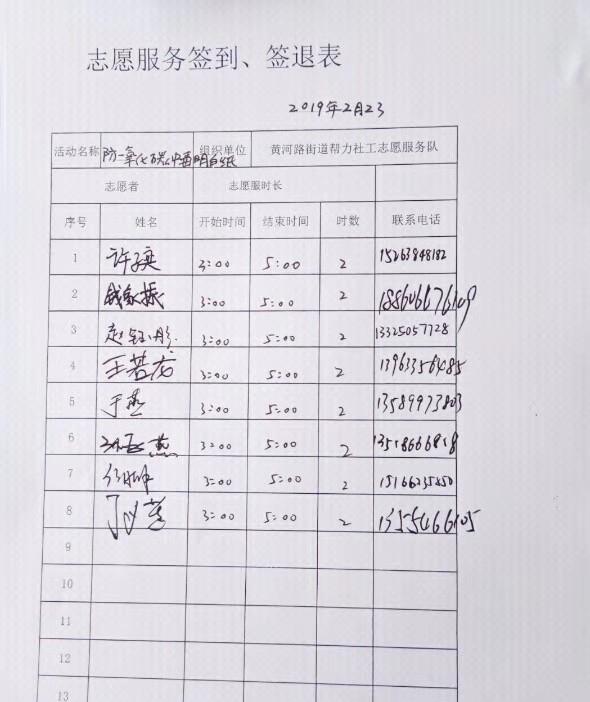 志愿服务签到、签退表
2019年2月23
活动名称 防一氧化碳中毒明白纸 组织单位 黄河路街道帮力社工志愿服务队
志愿者 志愿服时长
序号 姓名 开始时间 结束时间 时数 联系电话
1 许 3:00 5:00 2 15263848182
2 振 3:00 5:00 2
3 赵钰彤 3:00 5:00 2 13325057728
4 王若龙 3:00 5:00 2 13963356485
5 于燕 3:00 5:00 2 13589973803
6 燕 3:00 5:00 2
7 3:00 5:00 2 15166235850
8 3:00 5:00 2
9
10
11
12
13